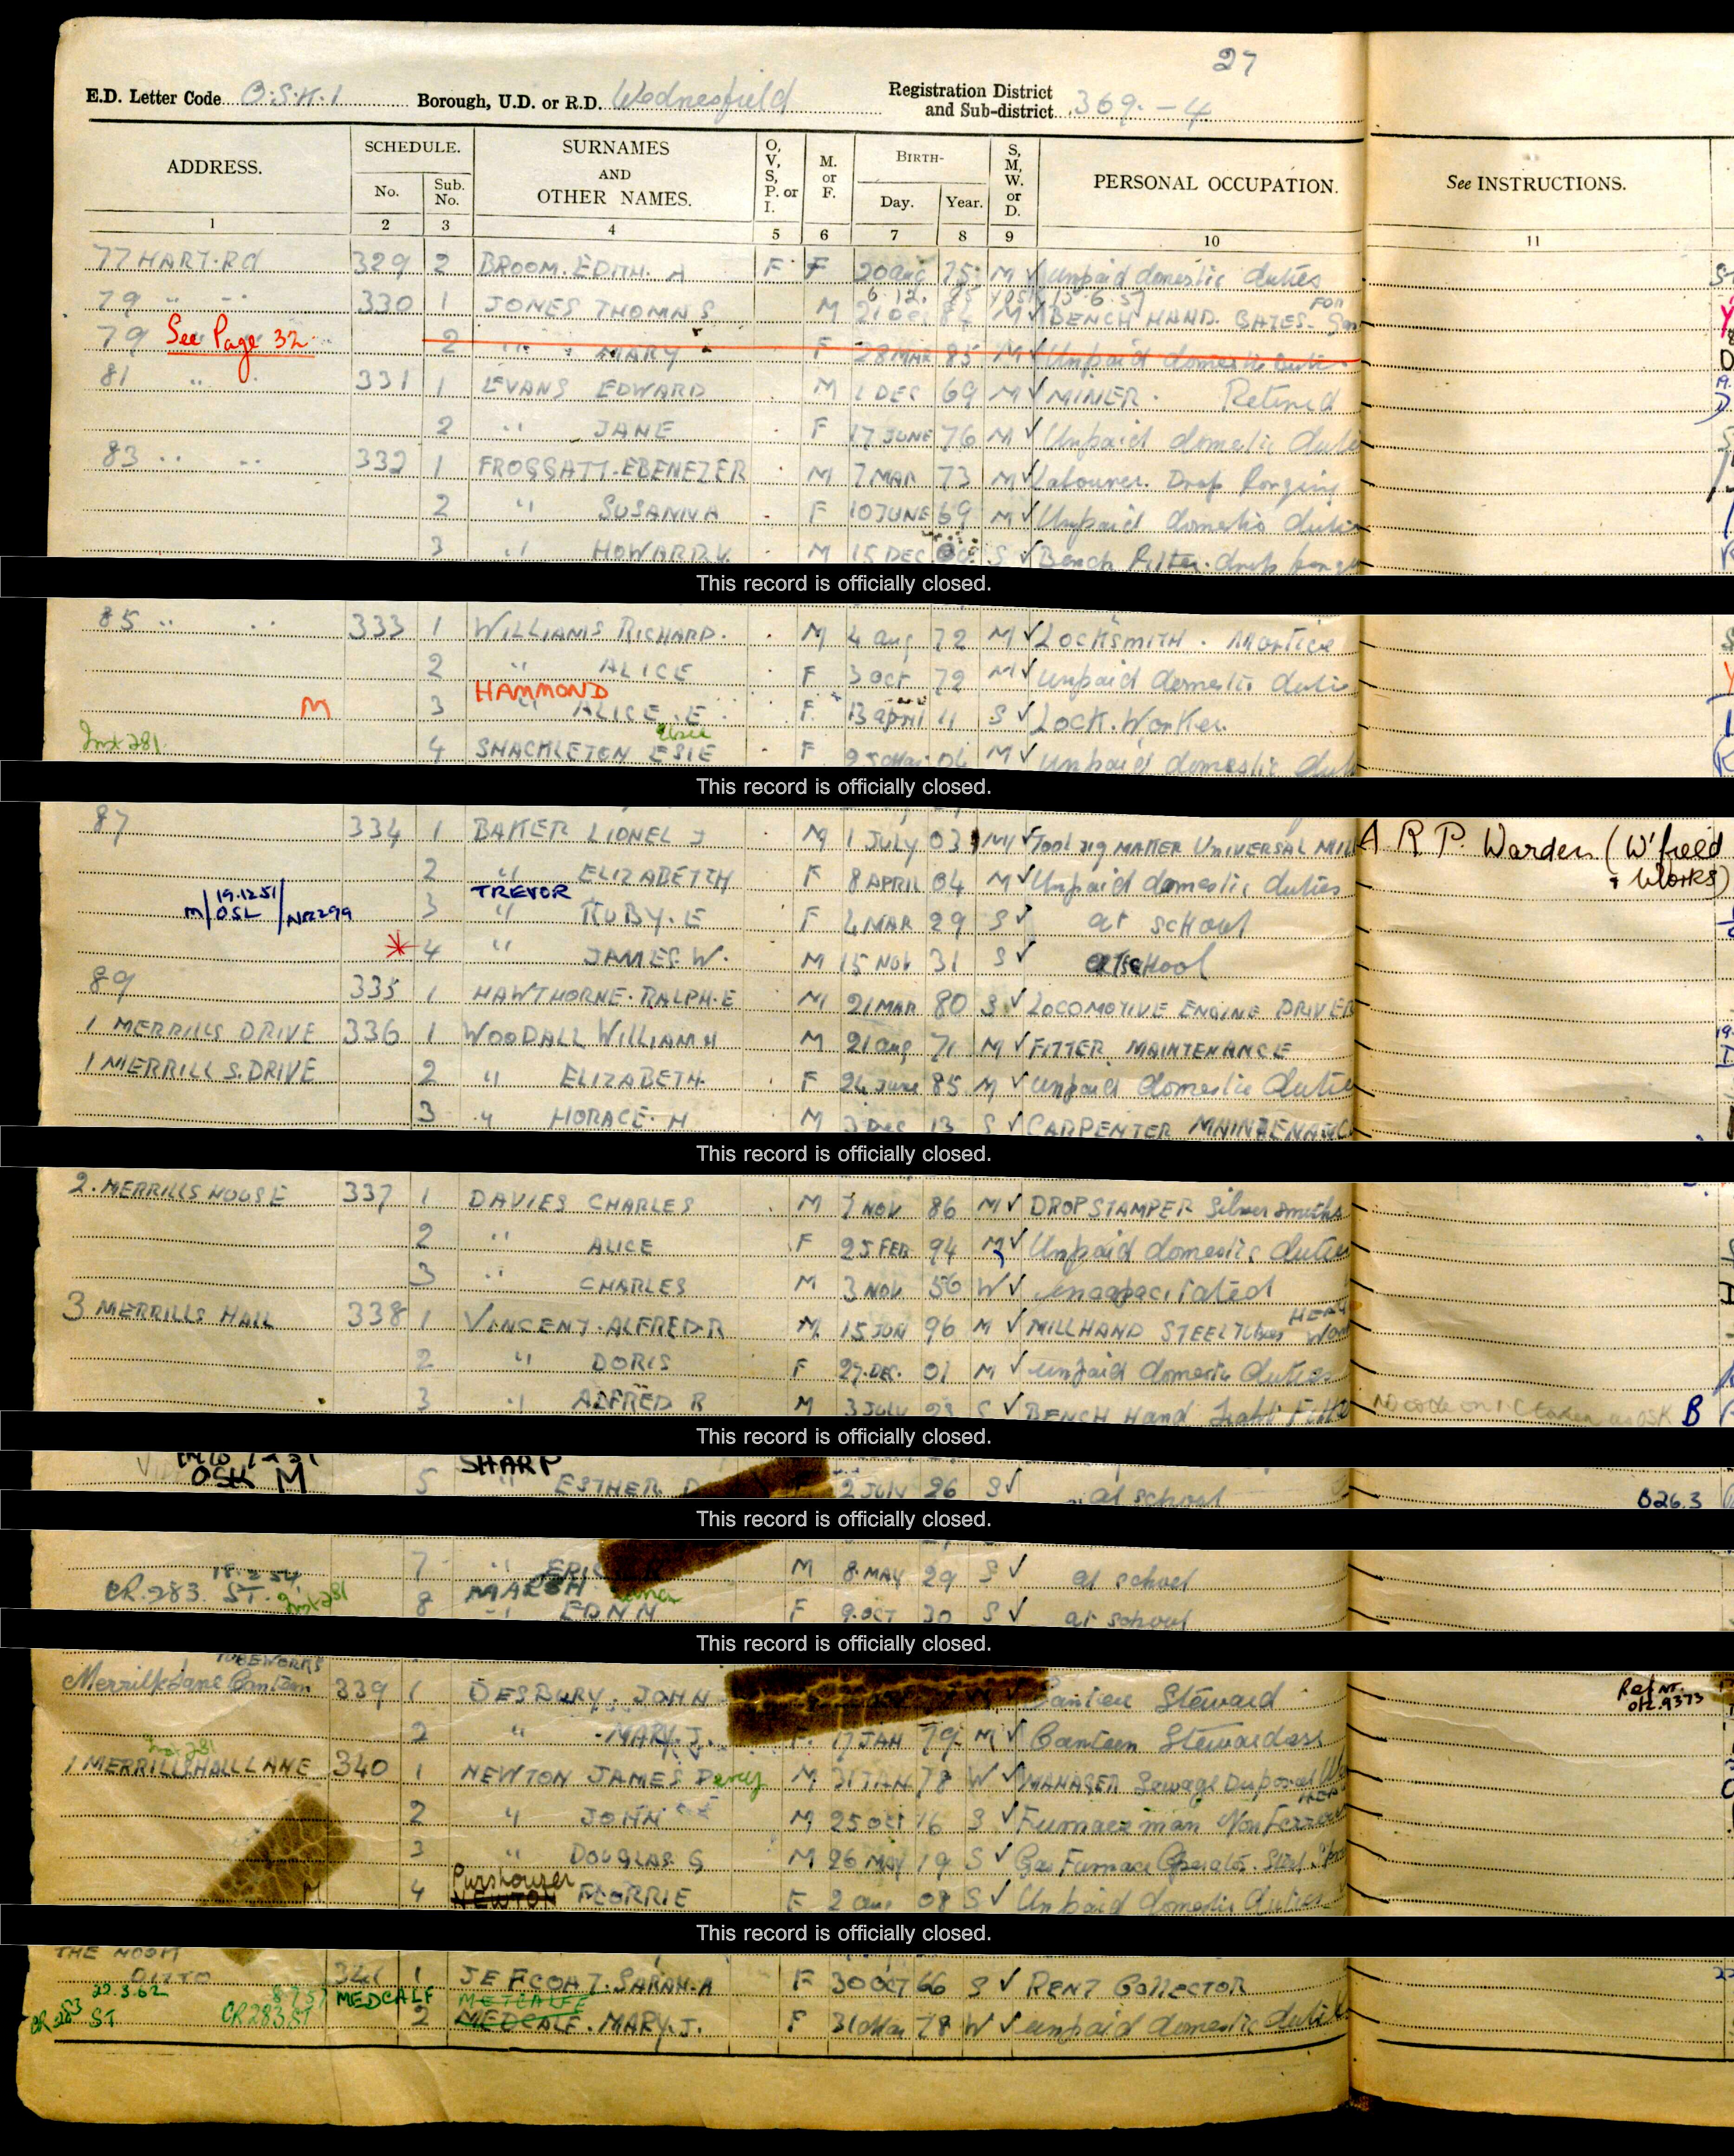 27
E.D. Letter Code O.S.K.1 Borough, U.D. or R.D. Wednesfield Registration District and Sub-district 369.-4
ADDRESS. SCHEDULE. No. Sub. No. SURNAMES AND OTHER NAMES. O, V, S, P. or I. M. or F. BIRTH- Day. Year. S, M, W. or D. PERSONAL OCCUPATION. See INSTRUCTIONS.
1 2 3 4 5 6 7 8 9 10 11
77 HART. Rd 329 2 BROOM. EDITH. A F F 20 aug 75 M ✓ Unpaid domestic duties
6.12. 85 15.6.57
79 " " 330 1 JONES THOMAS M 21 Dec 84 M ✓ BENCH HAND. BATES.
79 See Page 32 2 " " MARY F 28 MAR 85 M ✓ Unpaid domestic
81 " 331 1 EVANS EDWARD M 1 DEC 69 M ✓ MINER. Retired
2 " JANE F 17 JUNE 76 M ✓ Unpaid domestic
83 " " 332 1 FROGGATT. EBENEZER M 7 MAR 73 M ✓ Labourer. Drop Forging
2 " SUSANNA F 10 JUNE 69 M ✓ Unpaid domestic
3 " HOWARD.V. M 15 DEC S ✓ Bench Fitter. drop
This record is officially closed.
85 " " 333 1 WILLIAMS RICHARD. M 4 aug 72 M ✓ LOCKSMITH. Mortice
2 " ALICE F 3 oct 72 M ✓ unpaid domestic
HAMMOND
M 3 " ALICE. E F. 13 april 11 S ✓ LOCK. Worker.
Elsie
Inst 281 4 SHACKLETON ESIE F M ✓ unpaid domestic
This record is officially closed.
87 334 1 BAKER LIONEL J M 1 JULY 03 M ✓ Tool Jig MAKER UNIVERSAL A R P. Warden (W'field
Works)
2 " ELIZABETH F 8 APRIL 04 M ✓ Unpaid domestic duties
19.12.51 TREVOR
M/OSL/NR299 3 " RUBY. E F 4 MAR 29 S ✓ at school
* 4 " JAMES W. M 15 NOV 31 S ✓ at school
89 335 1 HAWTHORNE. RALPH. E M 21 MAR 80 S ✓ LOCOMOTIVE ENGINE DRIVER
1 MERRILLS DRIVE 336 1 WOODALL WILLIAM H M 21 aug 71 M ✓ FITTER MAINTENANCE
1 MERRILL S. DRIVE 2 " ELIZABETH. F 24 June 85 M ✓ unpaid domestic
3 " HORACE. H M 3 Dec 13 S ✓ CARPENTER
This record is officially closed.
2. MERRILLS HOUSE 337 1 DAVIES CHARLES M 7 NOV 86 M ✓ DROP STAMPER Silver smiths
2 " ALICE F 25 FEB 94 M ✓ Unpaid domestic duties
3 " CHARLES M 3 NOV 56 W ✓ incapacitated
3 MERRILLS HALL 338 1 VINCENT. ALFRED R M. 15 JUN 96 M ✓ MILLHAND STEEL Tubes
2 " DORIS F 27. DEC. 01 M ✓ unpaid domestic duties
3 " ALFRED R M 3 JULY S ✓ BENCH Hand B
This record is officially closed.
OSK M SHARP
5 " ESTHER D 2 JULY 26 S ✓ at school B26.3
This record is officially closed.
7 " ERIC M 8. MAY 29 S ✓ at school
18.2.54 MARSH
CR.283. ST. Inst 281 8 " EDNA F 9. OCT 30 S ✓ at school
This record is officially closed.
TUBEWORKS
Merrills Lane Canteen 339 1 DESBURY. JOHN ✓ Canteen Steward
2 " MARY. J. 17 JAN 79 M ✓ Canteen Stewardess
Inst 281
1 MERRILLS HALL LANE 340 1 NEWTON JAMES Percy M 31 JAN 78 W ✓ MANAGER Sewage Disposal
2 " JOHN M 25 oct 16 S ✓ Furnace man Non Ferrous
3 " DOUGLAS G M 26 MAY 19 S ✓ Gas Furnace Operator.
Purshouser
4 NEWTON FLORRIE F 2 aug 08 S ✓ Unpaid domestic duties
This record is officially closed.
THE NOOK
DITTO 341 1 JEFCOAT. SARAH. A F 30 OCT 66 S ✓ RENT Collector
22.3.62 MEDCALF METCALFE
CR 283 ST CR 283 ST 2 MEDCALF. MARY. J. F 31 Mar 78 W ✓ unpaid domestic duties